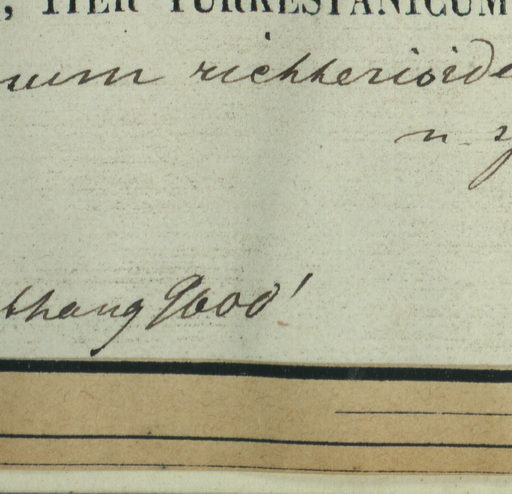 , ITER TURKESTANICUM
richterioide
n.
thang 9000'